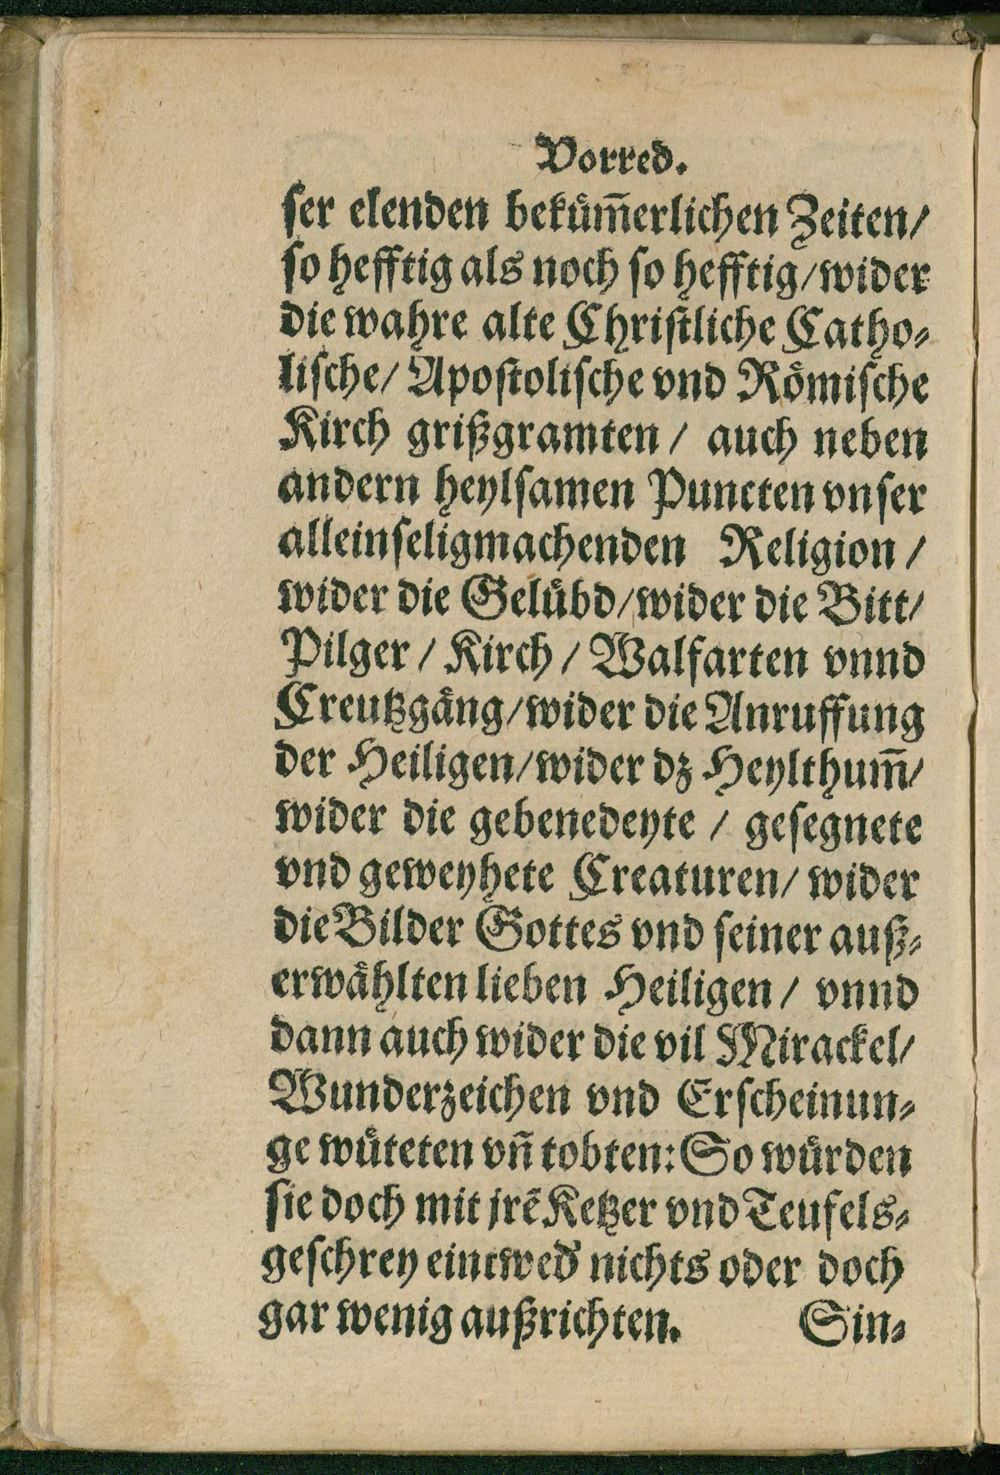 Vorred.
ſer elenden bekuͤm̃erlichen Zeiten/
ſo hefftig als noch ſo hefftig/wider
die wahre alte Chriſtliche Catho⸗
liſche/ Apoſtoliſche vnd Roͤmiſche
Kirch grißgramten / auch neben
andern heylſamen Puncten vnſer
alleinſeligmachenden Religion /
wider die Geluͤbd/wider die Bitt/
Pilger / Kirch / Walfarten vnnd
Creutzgaͤng/wider die Anruffung
der Heiligen/wider dz Heylthum̃/
wider die gebenedeyte / geſegnete
vnd geweyhete Creaturen/ wider
die Bilder Gottes vnd ſeiner auß⸗
erwaͤhlten lieben Heiligen / vnnd
dann auch wider die vil Mirackel/
Wunderzeichen vnd Erſcheinun⸗
ge wuͤteten vñ tobten: So wuͤrden
ſie doch mit jrẽ Ketzer vnd Teufels⸗
geſchrey eintwed' nichts oder doch
gar wenig außrichten. Sin⸗